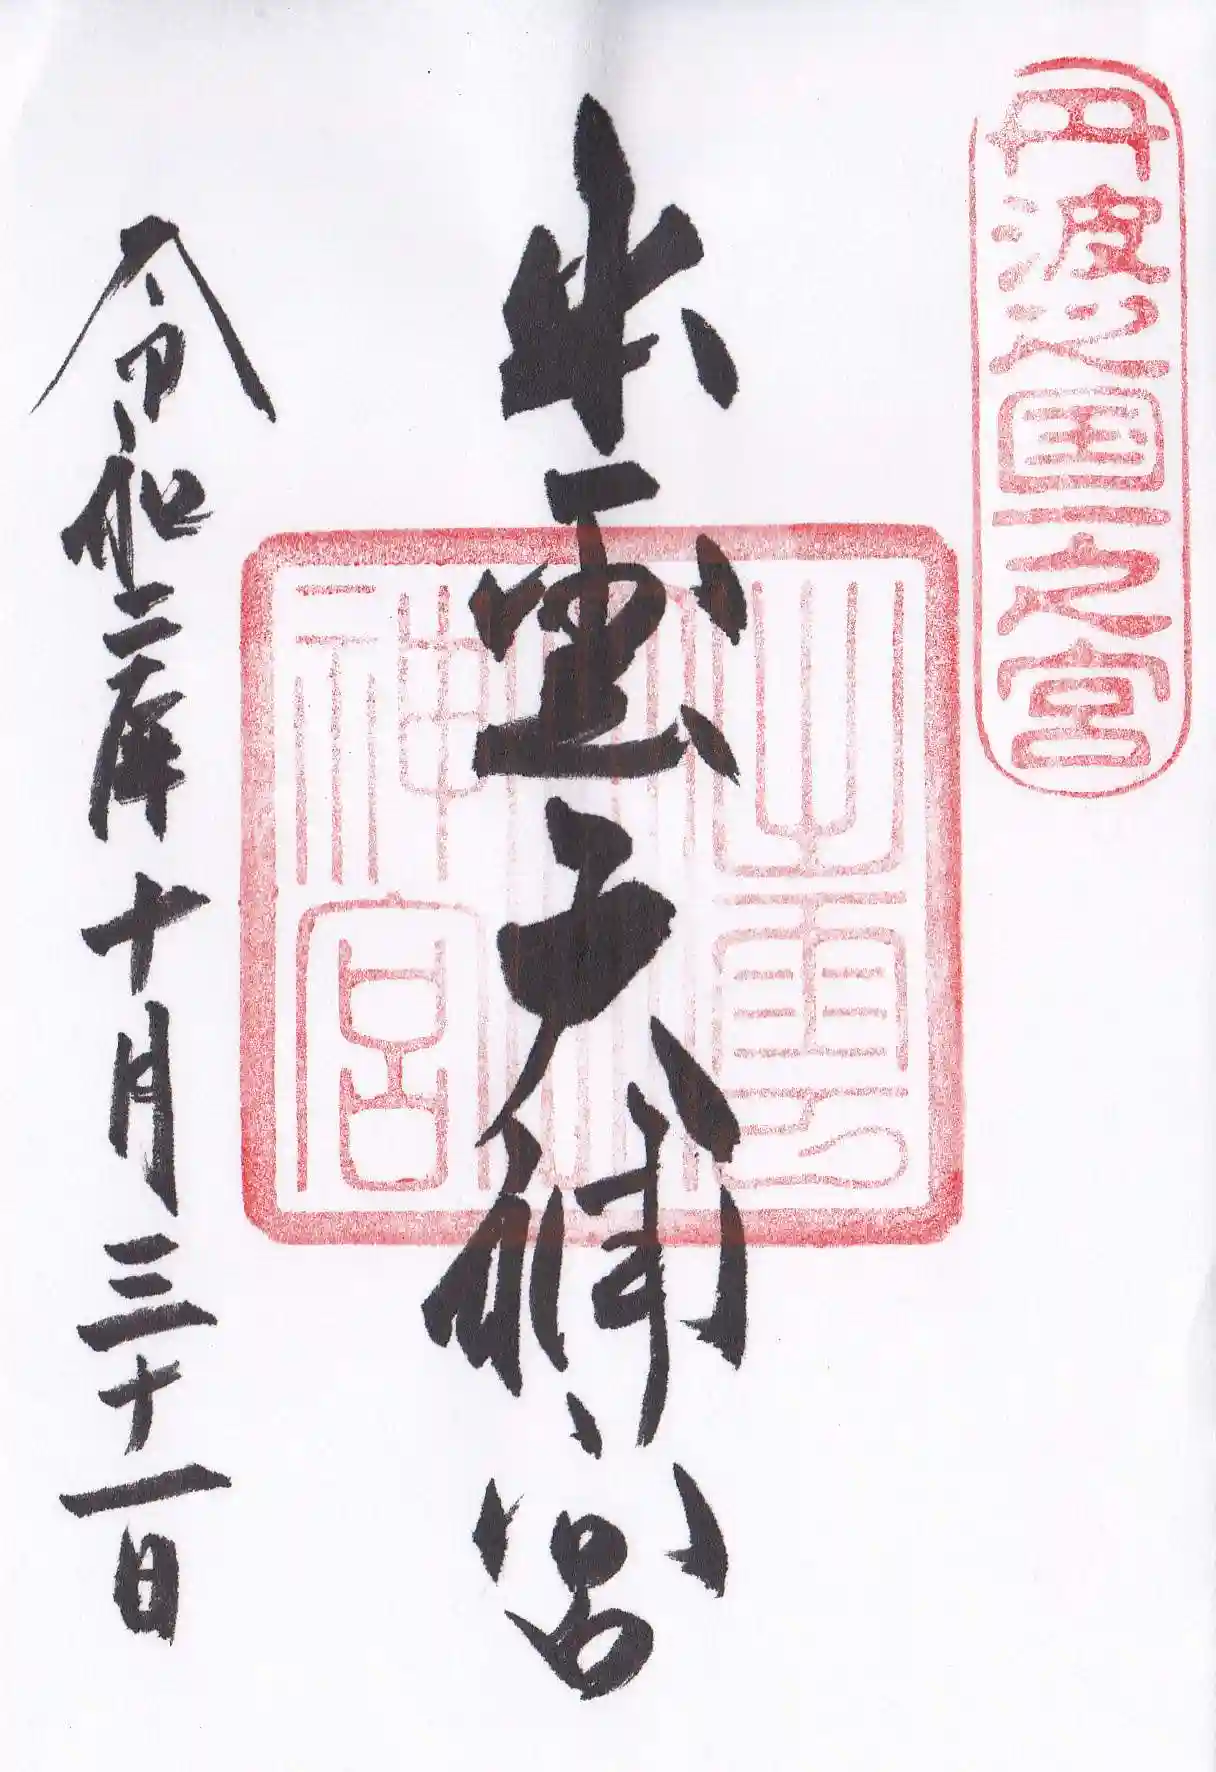 丹波之国一之宮
出雲大神宮
出雲大神宮
令和二年十月三十一日